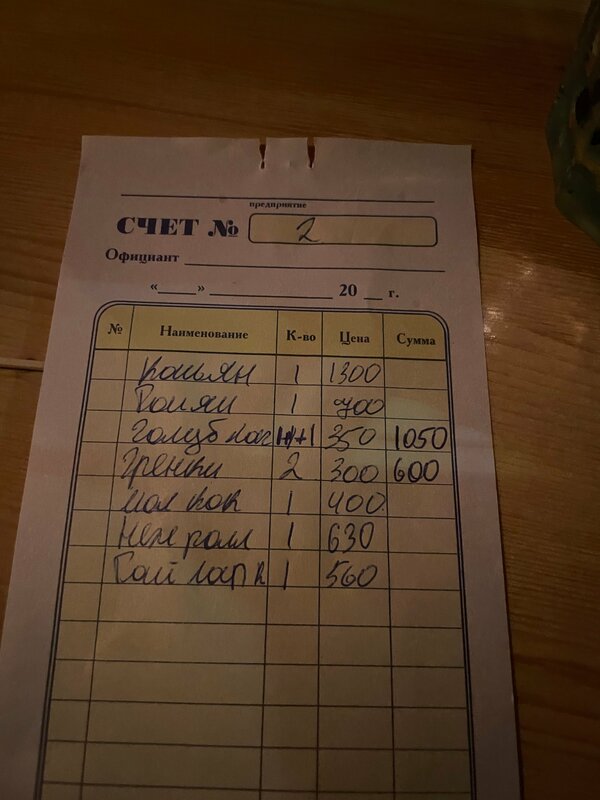 предприятие
СЧЕТ № 2
Официант
« » 20 г.
№ Наименование К-во Цена Сумма
Кальян 1 1300
1 700
Голуб лаг 1+1+1 350 1050
Гренки 2 300 600
Мол кок 1 400
Неж ролл 1 630
1 560